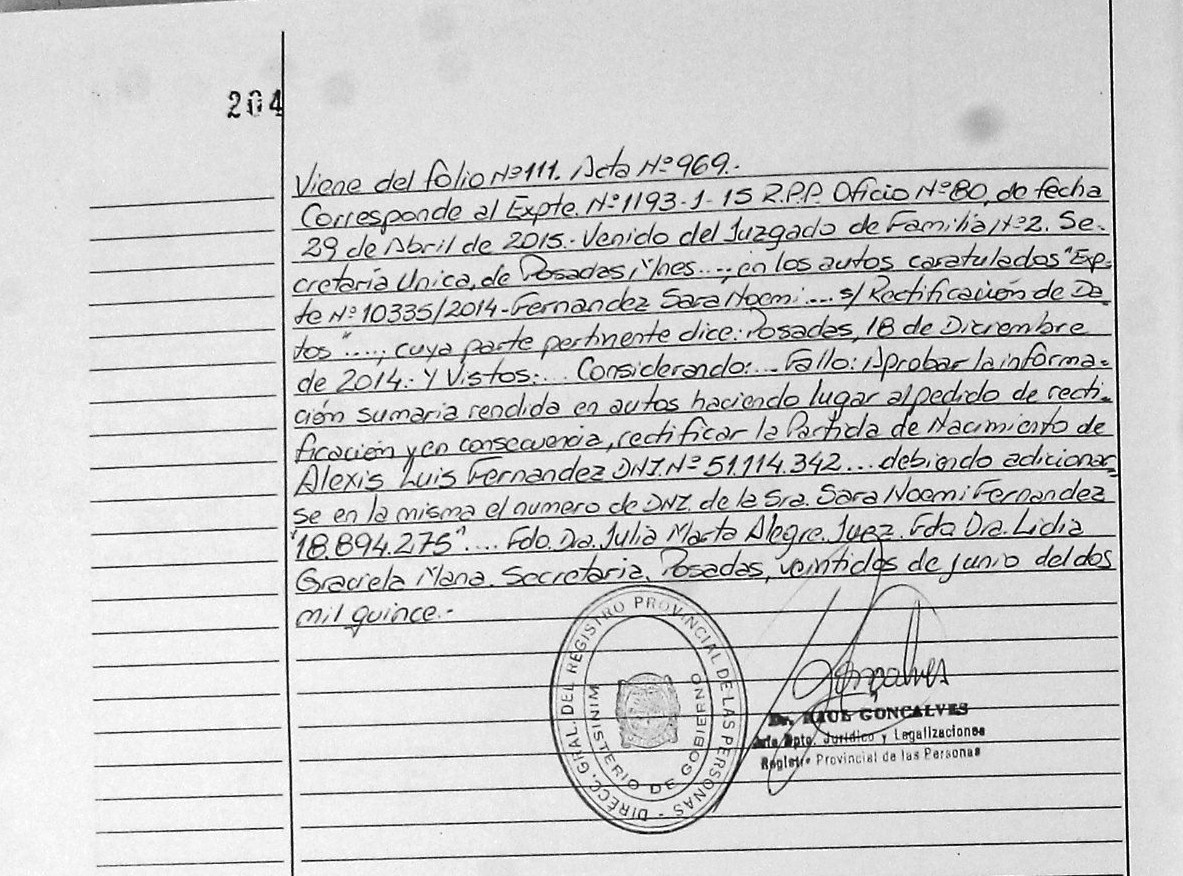 204
Viene del folio Nº 111. Acta Nº 969.-
Corresponde al Expte. Nº 1193-1-15 R.P.P. Oficio Nº 80, de fecha
29 de Abril de 2015.- Venido del Juzgado de Familia Nº 2. Se-
cretaría Unica, de Posadas, Mnes...., en los autos caratulados "Exp-
te Nº 10335/2014-Fernandez Sara Noemi.... s/ Rectificación de Da-
tos"...., cuya parte pertinente dice: Posadas, 18 de Diciembre
de 2014.- Y Vistos:... Considerando:... Fallo: Aprobar la informa-
ción sumaria rendida en autos haciendo lugar al pedido de recti-
ficación y en consecuencia, rectificar la Partida de Nacimiento de
Alexis Luis Fernandez DNI. Nº 51.114.342... debiendo adicionar-
se en la misma el numero de DNI. de la Sra. Sara Noemi Fernandez
"18.894.275".... Fdo. Dra. Julia Marta Alegre. Juez. Fdo Dra. Lidia
Graciela Mana. Secretaria. Posadas, veintidos de junio del dos
mil quince.-
DIRECC. GRAL. DEL REGISTRO PROVINCIAL DE LAS PERSONAS -
MINISTERIO DE GOBIERNO
Goncalves
Dr. RAUL GONCALVES
Jefe Dpto. Jurídico y Legalizaciones
Registro Provincial de las Personas